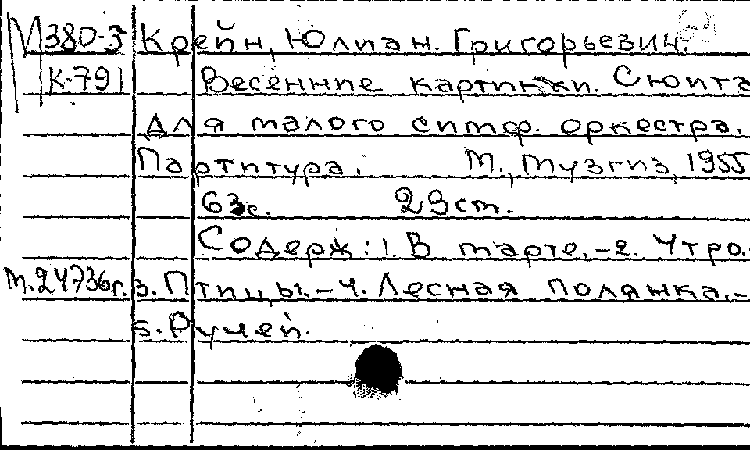 М380-3 Крейн, Юлиан Григорьевич.
К-791 Весенние картинки. Сюита
для малого симф. оркестра.
Партитура. М., Музгиз, 1955
63с. 29см.
Содерж: 1. В марте. - 2. Утро.
М.24736г. 3. Птицы. - 4. Лесная полянка. -
5. Ручей.